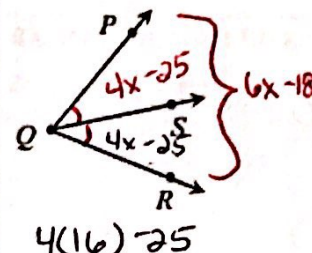 P
4x-25
6x-18
Q
S
4x-25
R
4(16)-25